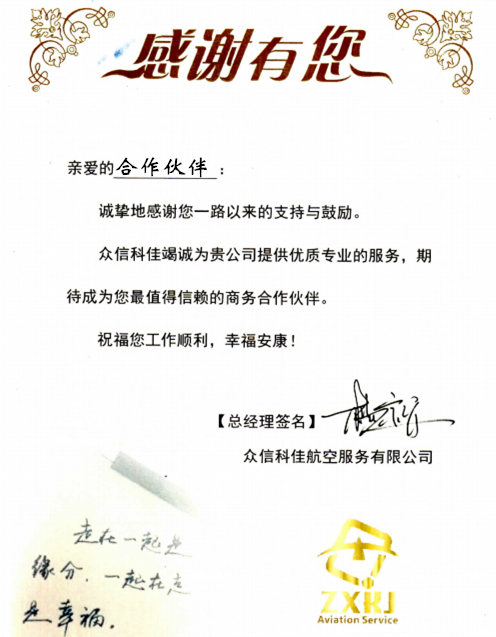 感谢有您
亲爱的合作伙伴：
诚挚地感谢您一路以来的支持与鼓励。
众信科佳竭诚为贵公司提供优质专业的服务，期
待成为您最值得信赖的商务合作伙伴。
祝福您工作顺利，幸福安康！
【总经理签名】
众信科佳航空服务有限公司
走在一起是
缘分，一起在走
是幸福。
ZXKJ
Aviation Service